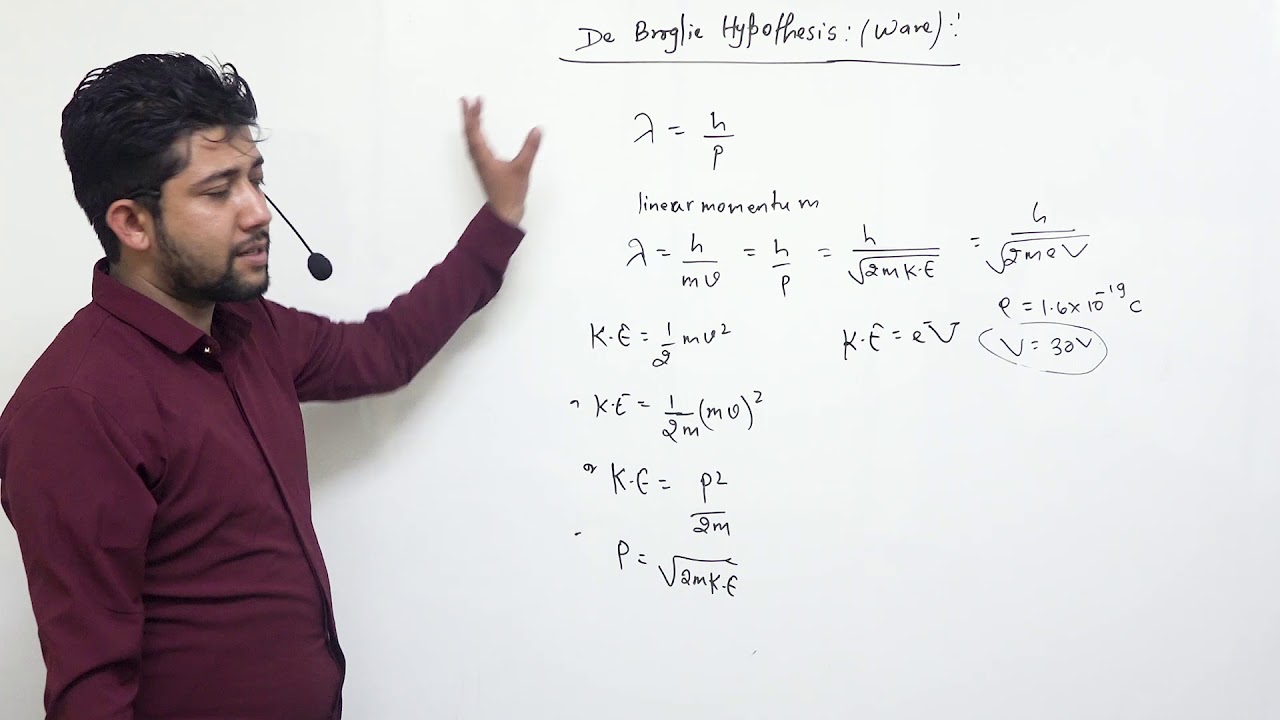 De Broglie Hypothesis: (Wave) :
λ = h/p
linear momentum
λ = h/mv = h/p = h/√2mK.E = h/√2meV
e = 1.6×10⁻¹⁹C
K.E = 1/2 mv² K.E = eV V = 30V
K.E = 1/2m (mv)²
or K.E = p²/2m
P = √2mK.E